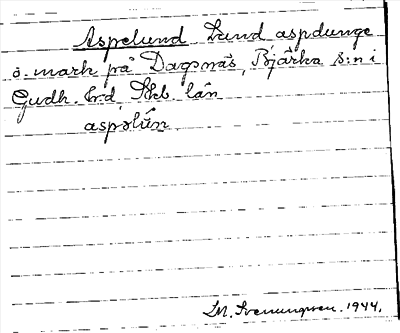 Aspelund Lund aspdunge
ö. mark på Dagsnäs, Bjärka s:n i
Gudh. hd, Skb. län
aspəlun
M. Svenungsson. 1944.